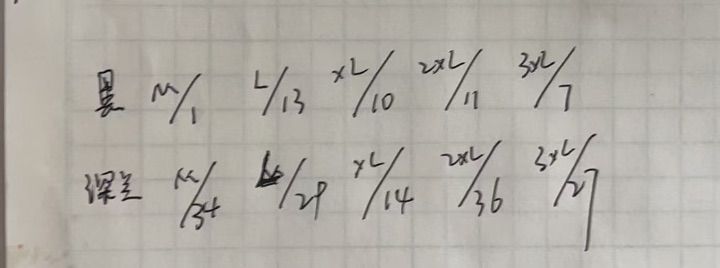 黑 M/1 L/13 XL/10 2XL/11 3XL/7
深兰 M/34 L/29 XL/14 2XL/36 3XL/27